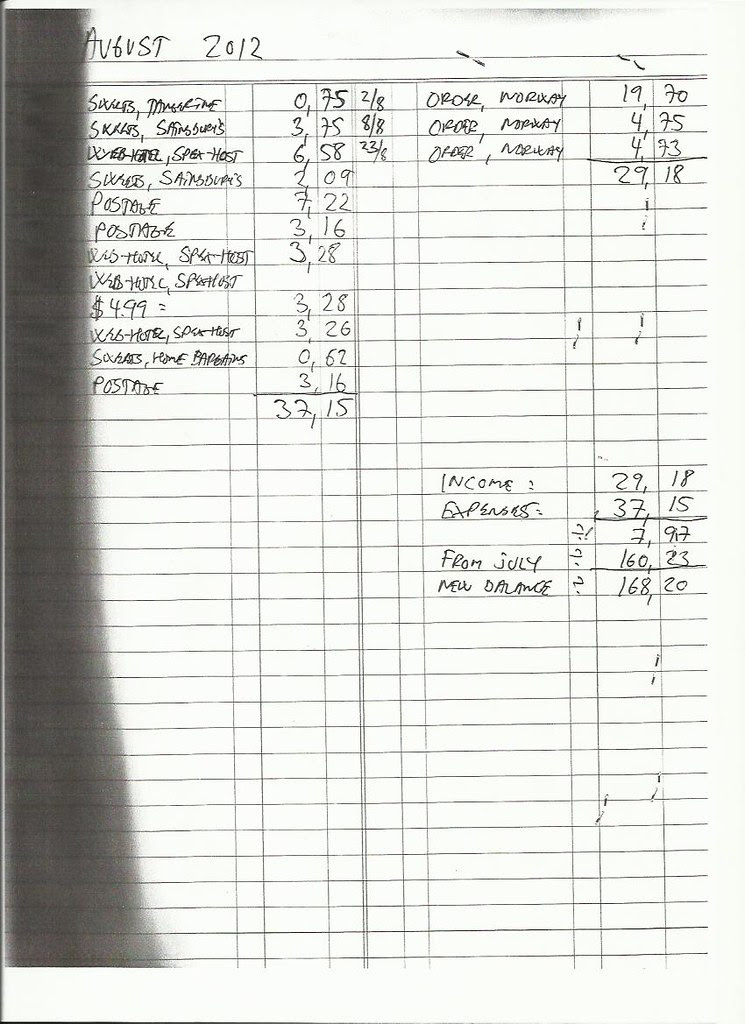 AUGUST 2012
SWEETS, TANGERINE 0,75 2/8 ORDER, NORWAY 19,70
SWEETS, SAINSBURY'S 3,75 8/8 ORDER, NORWAY 4,75
WEB-HOTEL, SPEX-HOST 6,58 23/8 ORDER, NORWAY 4,73
SWEETS, SAINSBURY'S 2,09 29,18
POSTAGE 7,22
POSTAGE 3,16
WEB-HOTEL, SPEX-HOST 3,28
WEB-HOTEL, SPEXHOST
$4.99 = 3,28
WEB-HOTEL, SPEX-HOST 3,26
SWEETS, HOME BARGAINS 0,62
POSTAGE 3,16
37,15
INCOME: 29,18
EXPENSES: 37,15
7,97
FROM JULY 160,23
NEW BALANCE 168,20